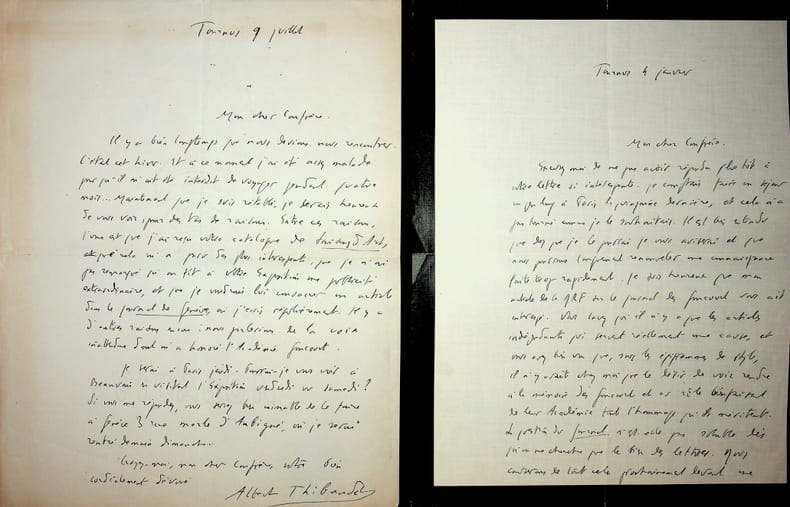 Tournus 9 juillet
Mon cher Confrère.
Il y a bien longtemps que nous devions nous rencontrer.
C'était cet hiver. Et à ce moment j'ai été assez malade
pour qu'il m'ait été interdit de voyager pendant quatre
mois... Maintenant que je suis rétabli, je serais heureux
de vous voir pour des tas de raisons. Entre ces raisons,
l'une est que j'ai reçu votre catalogue de
et que cela m'a paru des plus intéressants, que je n'ai
pas remarqué qu'on ait fait à votre Exposition une publicité
extraordinaire, et que je voudrais lui consacrer un article
dans le Journal de Genève, où j'écris régulièrement. Il y a
d'autres raisons encore : nous parlerions de la voix
inattendue dont m'a honoré l'Académie Goncourt.
Je serai à Paris jeudi. Pourrai-je vous voir à
Beauvais en visitant l'Exposition vendredi ou samedi ?
Si vous me répondez, vous serez bien aimable de le faire
à 3 rue Agrippa d'Aubigné, où je serai
rentré demain dimanche.
Croyez-moi, mon cher Confrère, votre bien
cordialement dévoué
Albert Thibaudet
Tournus 4 janvier
Mon cher Confrère.
Excusez moi de ne pas avoir répondu plus tôt à
votre lettre si intéressante. Je comptais faire un séjour
un peu long à Paris la quinzaine dernière, et cela n'a
pas tourné comme je le souhaitais. Il est bien entendu
que dès que je le pourrai je vous aviserai et que
nous pourrons longuement renouveler une connaissance
faite trop rapidement. Je suis heureux que mon
article de la NRF sur le Journal des Goncourt vous ait
intéressé. Vous savez qu'il n'y a que les articles
indépendants qui servent réellement une cause, et
vous avez bien vu que, sous les épigrammes de style,
il n'y avait chez moi que le désir de voir rendre
à la mémoire des Goncourt et au rôle bienfaisant
de leur Académie tout l'hommage qu'ils méritent.
La question du Journal n'est-elle pas soluble dès
qu'on ne cherche que le bien des lettres. Nous
causerons de tout cela prochainement devant une